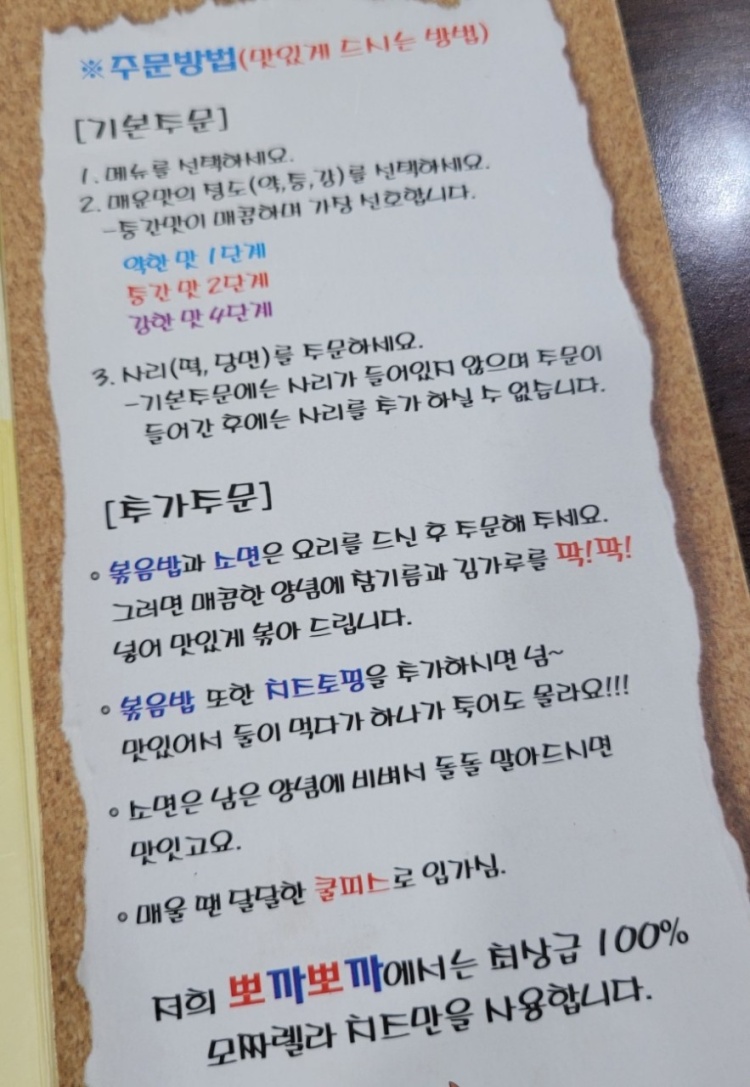 ※주문방법(맛있게 드시는 방법)
[기본주문]
1. 메뉴를 선택하세요.
2. 매운맛의 정도(약,중,강)를 선택하세요.
-중간맛이 매콤하며 가장 선호합니다.
약한 맛 1단계
중간 맛 2단계
강한 맛 4단계
3. 사리(떡, 당면)를 주문하세요.
-기본주문에는 사리가 들어있지 않으며 주문이
들어간 후에는 사리를 추가 하실 수 없습니다.
[추가주문]
◦ 볶음밥과 소면은 요리를 드신 후 주문해 주세요.
그러면 매콤한 양념에 참기름과 김가루를 팍!팍!
넣어 맛있게 볶아 드립니다.
◦ 볶음밥 또한 치즈토핑을 추가하시면 넘~
맛있어서 둘이 먹다가 하나가 죽어도 몰라요!!!
◦ 소면은 남은 양념에 비벼서 돌돌 말아드시면
맛잇고요.
◦ 매울 땐 달달한 쿨피스로 입가심.
저희 뽀까뽀까에서는 최상급 100%
모짜렐라 치즈만을 사용합니다.